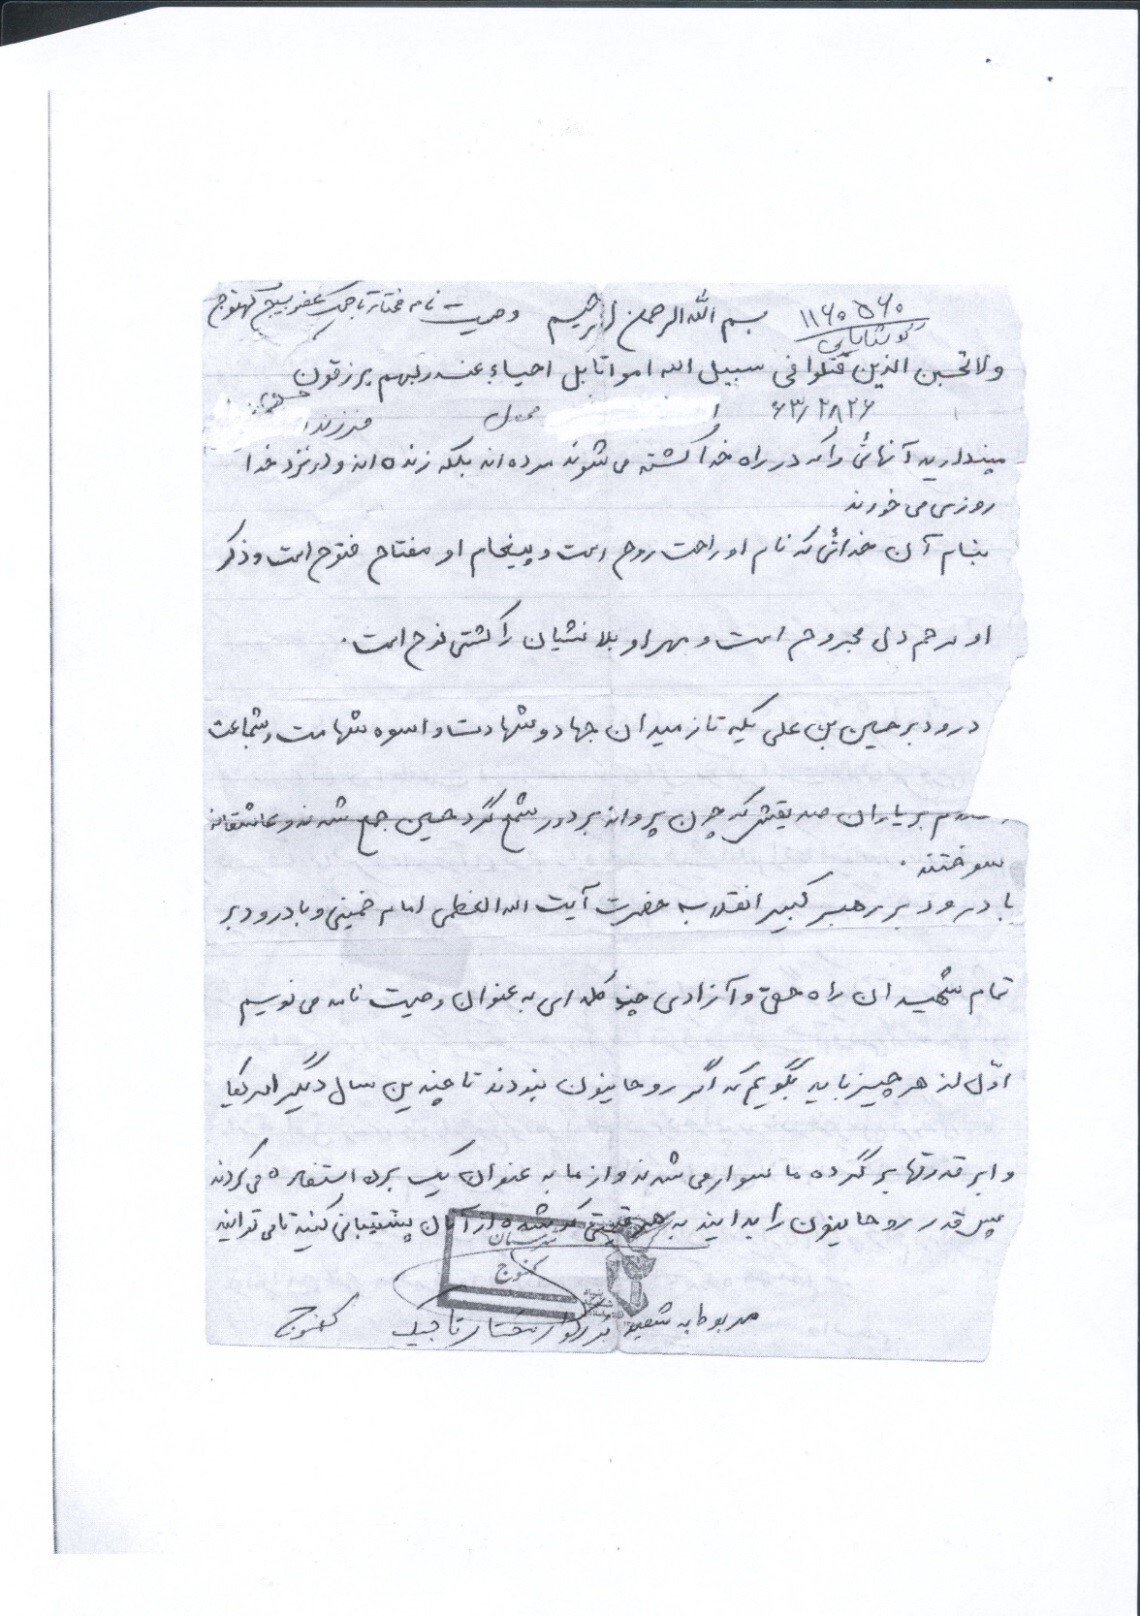 بسم الله الرحمن الرحیم وصیت نامه مختار تاجیک عضو بسیج کهنوج
۱۱۶۰۵۶۰
ولا تحسبن الذین قتلوا فی سبیل الله امواتا بل احیاء عند ربهم یرزقون
۶۳/۲۸۲۶ محل فرزند
مپندارید آنهائی را که در راه خدا کشته می شوند مرده اند بلکه زنده اند و در نزد خدا
روزی می خورند
بنام آن خدائی که نام او راحت روح است و پیغام او مفتاح فتوح است و ذکر
او مرحم دل مجروح است و مهر او بلا نشیان را کشتی نوح است.
درود بر حسین بن علی یکه تاز میدان جهاد و شهادت و اسوه شهامت و شجاعت
و سلام بر یاران صدیقش که چون پروانه بر دور شمع گرد حسین جمع شدند و عاشقانه
سوختند.
با درود بر رهبر کبیر انقلاب حضرت آیت الله العظمی امام خمینی و با درود بر
تمام شهیدان راه حق و آزادی چند کلمه ای به عنوان وصیت نامه می نویسم
اوّل از هر چیز باید بگویم که اگر روحانیون نبودند تا چندین سال دیگر امریکا
و ابر قدرتها بر گرده ما سوار می شدند و از ما به عنوان یک برده استفاده می کردند
پس قدر روحانیون را بدانید به هر قیمتی که شده از آنان پشتیبانی کنید تا می توانید
کهنوج
مربوط به شهید بزرگوار مختار تاجیک کهنوج